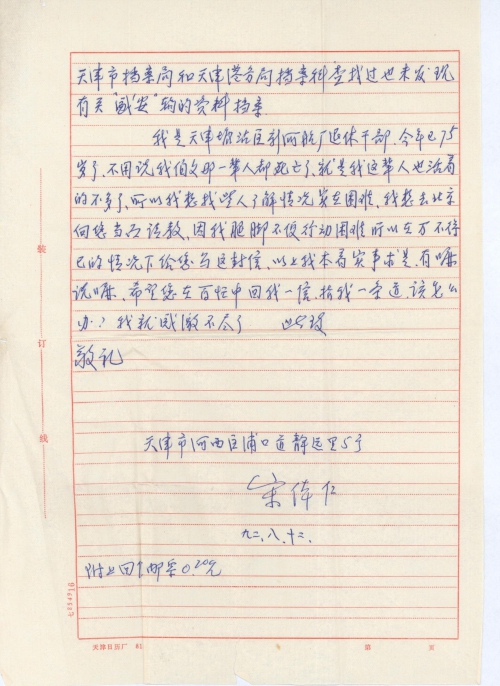 天津市档案局和天津港务局档案科查找过也未发现
有关"咸安"轮的资料档案.
我是天津塘沽区新河船厂退休干部.今年已75
岁了.不用说我伯父那一辈人都死亡了.就是我这辈人也活着
的不多了.所以我想找些人了解情况实在困难.我想去北京
向您当面请教.因我腿脚不便行动困难所以在万不得
已的情况下给您写这封信.以上我本着实事求是.有嘛
说嘛.希望您在百忙中回我一信.指我一条道.该怎么
办?我就感激不尽了 此致
敬礼
天津市河西区浦口道静远里5号
宋 仁
九二.八.十二.
附上回信邮票0.20元
装
订
线
天津日历厂
第 页